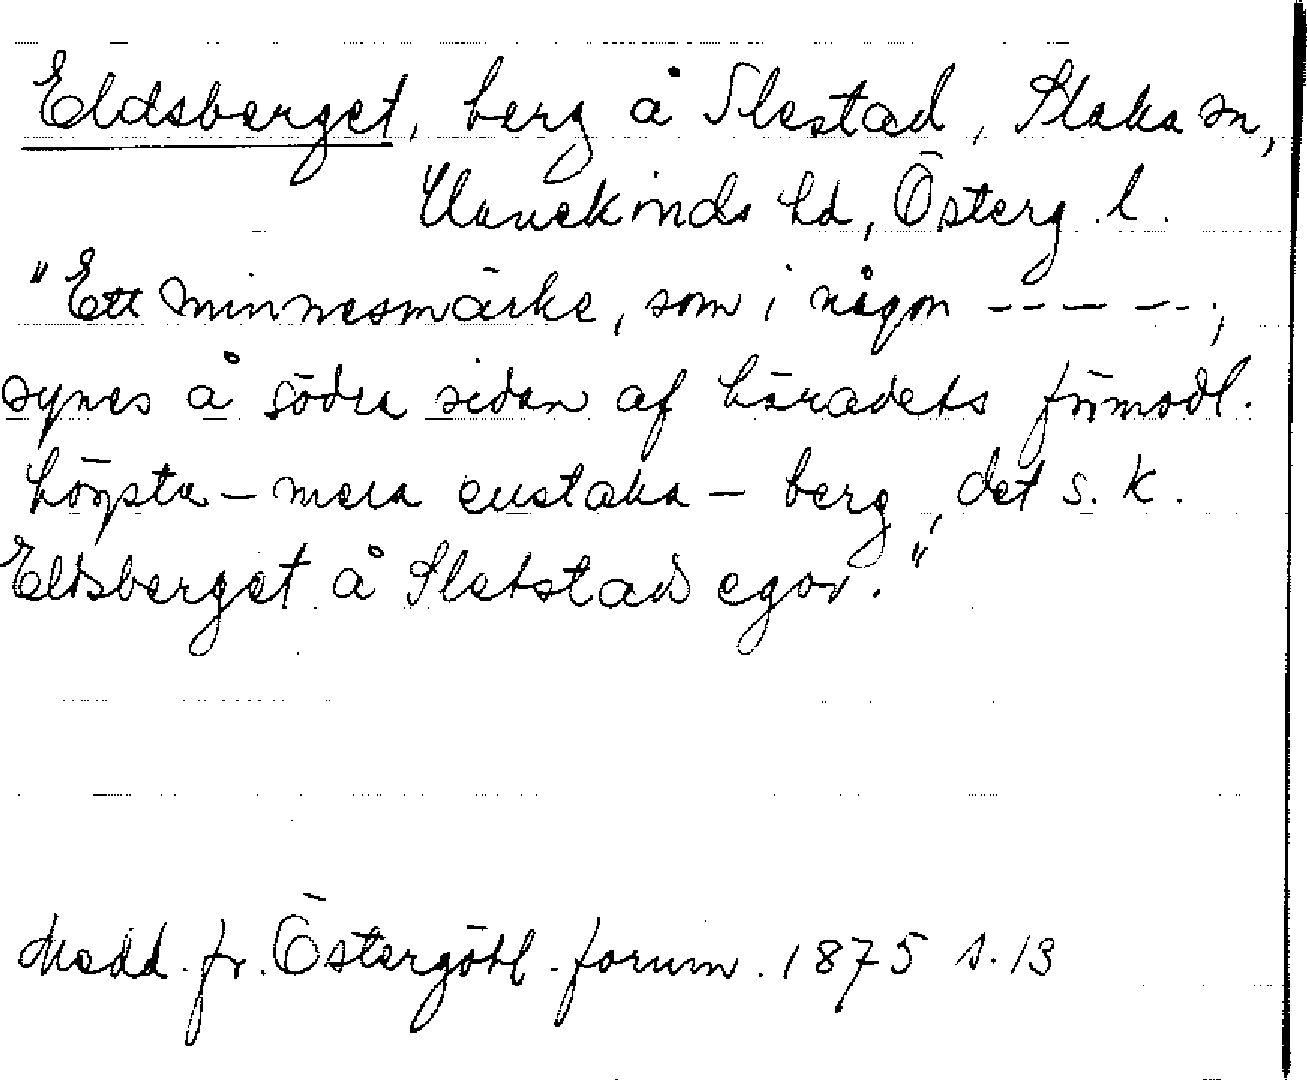 Eldsberget, berg å Slestad, Slaka sn,
Hanekinds hd, Österg. l.
"Ett minnesmärke, som i någon -----,
synes å södra sidan af häradets förmodl.
högsta - mera enstaka - berg, det s. k.
Eldsberget å Sletstad egor."
Medd. fr. Östergötl. fornm. 1875 s. 13